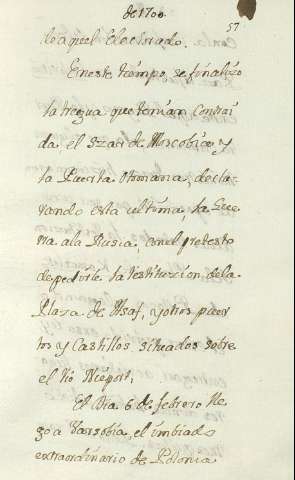 de 1700.
57
lo aquel Electorado.
En este tiempo, se finalizo
la tregua que tenian contrai-
da, el Szar de Moscobia, y
la Puerta Otomana, decla-
rando esta ultima, la Gue-
rra ala Rusia, con el pretesto
de pedirle la restituzion dela
Plaza de Asaf, y otros puer-
tos y Castillos situados sobre
el rio Nieper.
El dia 6 de febrero lle-
go a Varsobia, el imbiado
extraordinario de Polonia